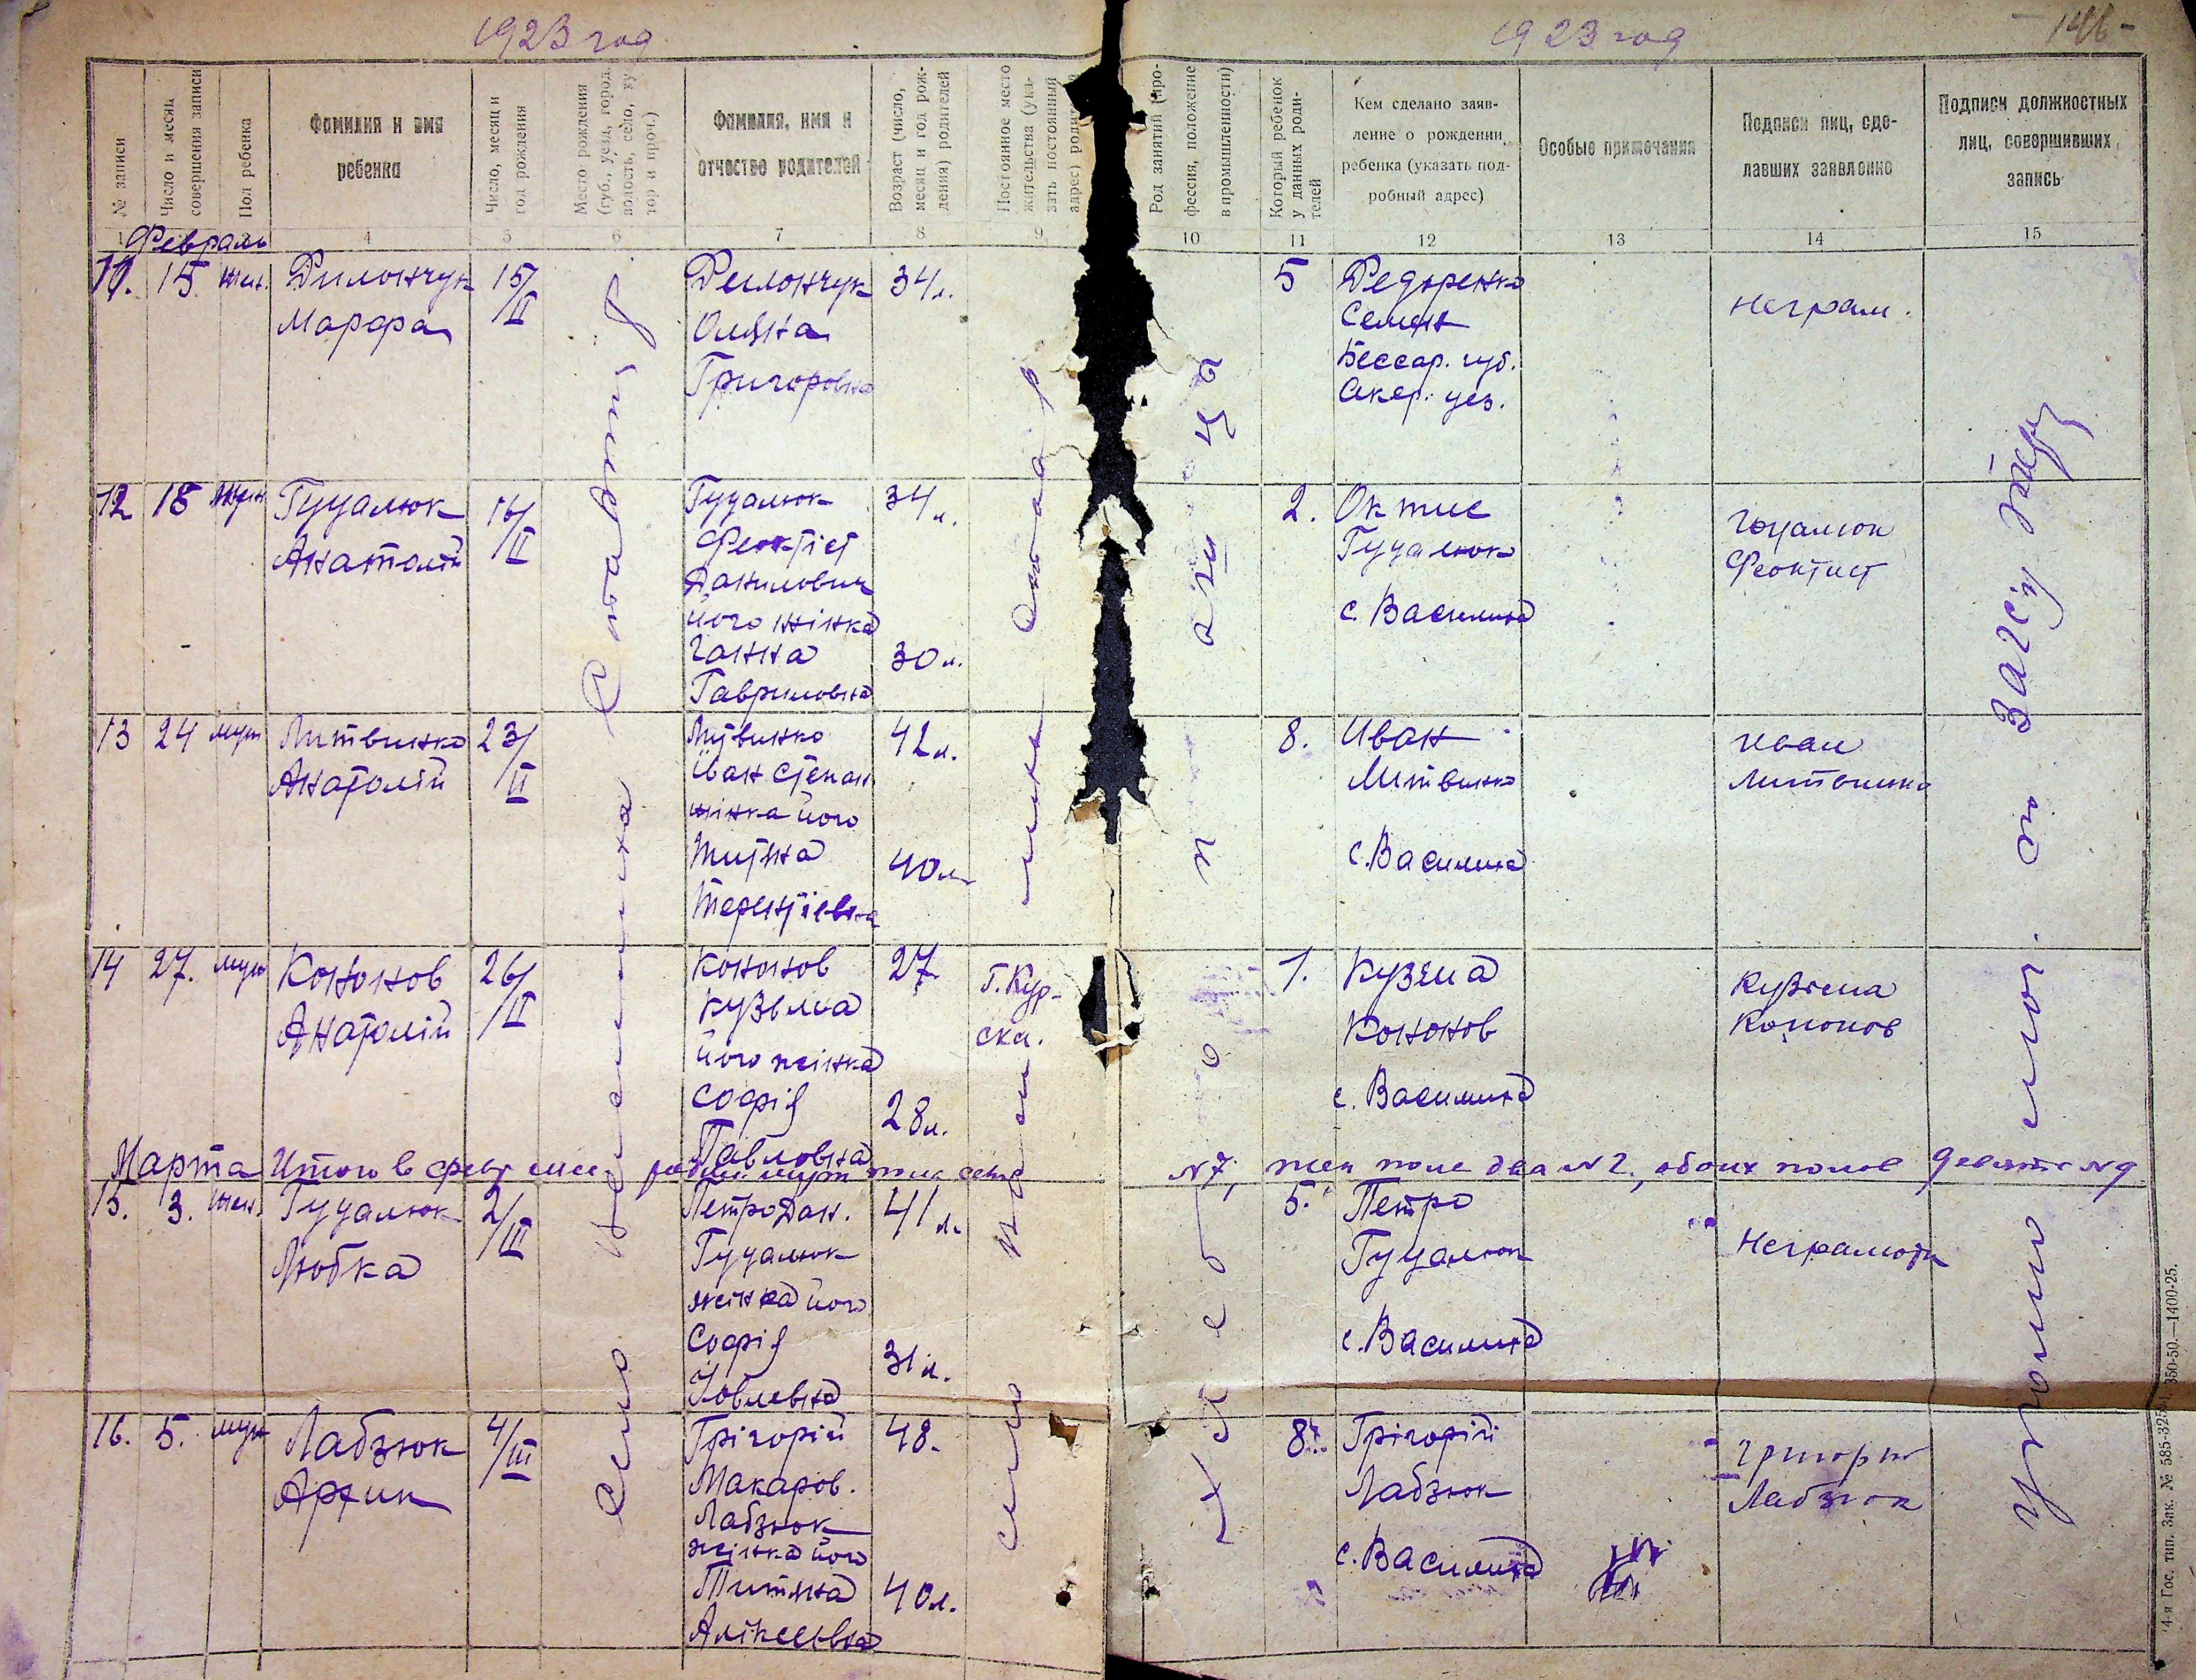 1923 год
1923 год
146
№ записи
Число и месяц
совершения записи
Пол ребенка
Фамилия и имя
ребенка
Число, месяц и
год рождения
Место рождения
(губ., уезд, город,
волость, село, ху-
тор и проч.)
Фамилия, имя и
отчество родителей
Возраст (число,
месяц и год рож-
дения) родителей
Постоянное место
жительства (ука-
зать постоянный
адрес)
Род занятий (про-
фессия, положение
в промышленности)
Который ребенок
у данных роди-
телей
Кем сделано заяв-
ление о рождении
ребенка (указать под-
робный адрес)
Особые примечания
Подписи лиц, сде-
лавших заявление
Подписи должностных
лиц, совершивших
запись
1 4 5 6 7 8 9 10 11 12 13 14 15
Февраль
11. 15. жен.
Дилончук
Марфа
15/II
Дилончук
Оляна
Григоровна
34 л.
5
Федоренко
Семен
Бессар. губ.
Акер. уез.
Неграм.
12 18
Гуцалюк
Анатолій
16/II
Гуцалюк
Феоктіст
Данилович
його жінка
Ганна
Гавриловна
34 л.
30 л.
2.
Гуцалюк
с. Василина
Гоцалюк
Феоктист
13 24 муж
Литвинко
Анатолій
23/II
Литвинко
Іван Степан
жінка його
Терентіевна
42 л.
40 л.
8.
Иван
Литвинко
с. Василина
Иван
Литвинко
14 27. муж
Кононов
Анатолій
26/II
Кононов
Кузьма
його жінка
Софія
Павловна
27.
28 л.
Г. Кур-
ска.
1.
Кузьма
Кононов
с. Василина
Кузьма
Кононов
Марта
Итого в февр м-це муж пола семь
№ 7, жен пола два № 2, обоих полов девять № 9
15. 3. жен.
Гуцалюк
Любка
2/III
Петро Дан.
Гуцалюк
жінка його
Софія
Іовлевна
41 л.
31 л.
5.
Петро
Гуцалюк
с. Василина
Неграмотн
16. 5. муж
Лабзюк
4/III
Грігорій
Макаров.
Лабзюк
жінка його
Титяна
Аліксеевна
48.
40 л.
8.
Грігорій
Лабзюк
с. Василина
Григорий
Лабзюк
Село
село
Хлебопашцы
Загсу
4-я Гос. тип. Зак. № 585-3253. 350-50.—1400-25.